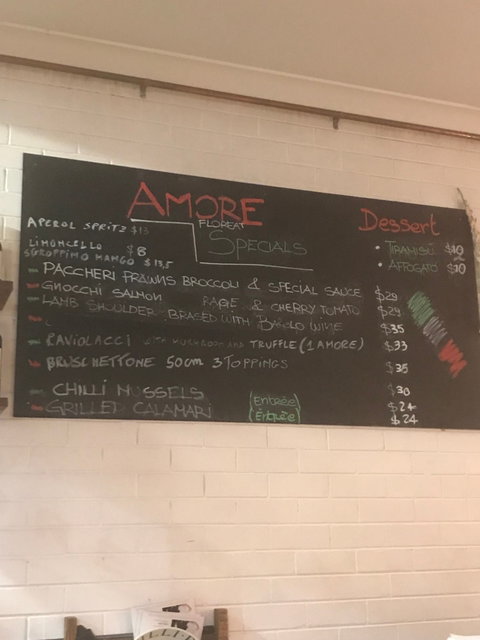 AMORE
FLOREAT
SPECIALS
APEROL SPRITZ $13
LIMONCELLO $8
SGROPPINO MANGO $13,5
Dessert
• TIRAMISÙ $10
• AFFOGATO $10
PACCHERI PRAWNS BROCCOLI & SPECIAL SAUCE $29
GNOCCHI SALMON & CHERRY TOMATO $29
LAMB SHOULDER BRASED WITH BAROLO WINE $35
RAVIOLACCI WITH MUSHROOM AND TRUFFLE (1 AMORE) $33
BRUSCHETTONE 50cm 3 TOPPINGS $35
$30
CHILLI MUSSELS (Entrèe) $24
GRILLED CALAMARI (Entrèe) $24